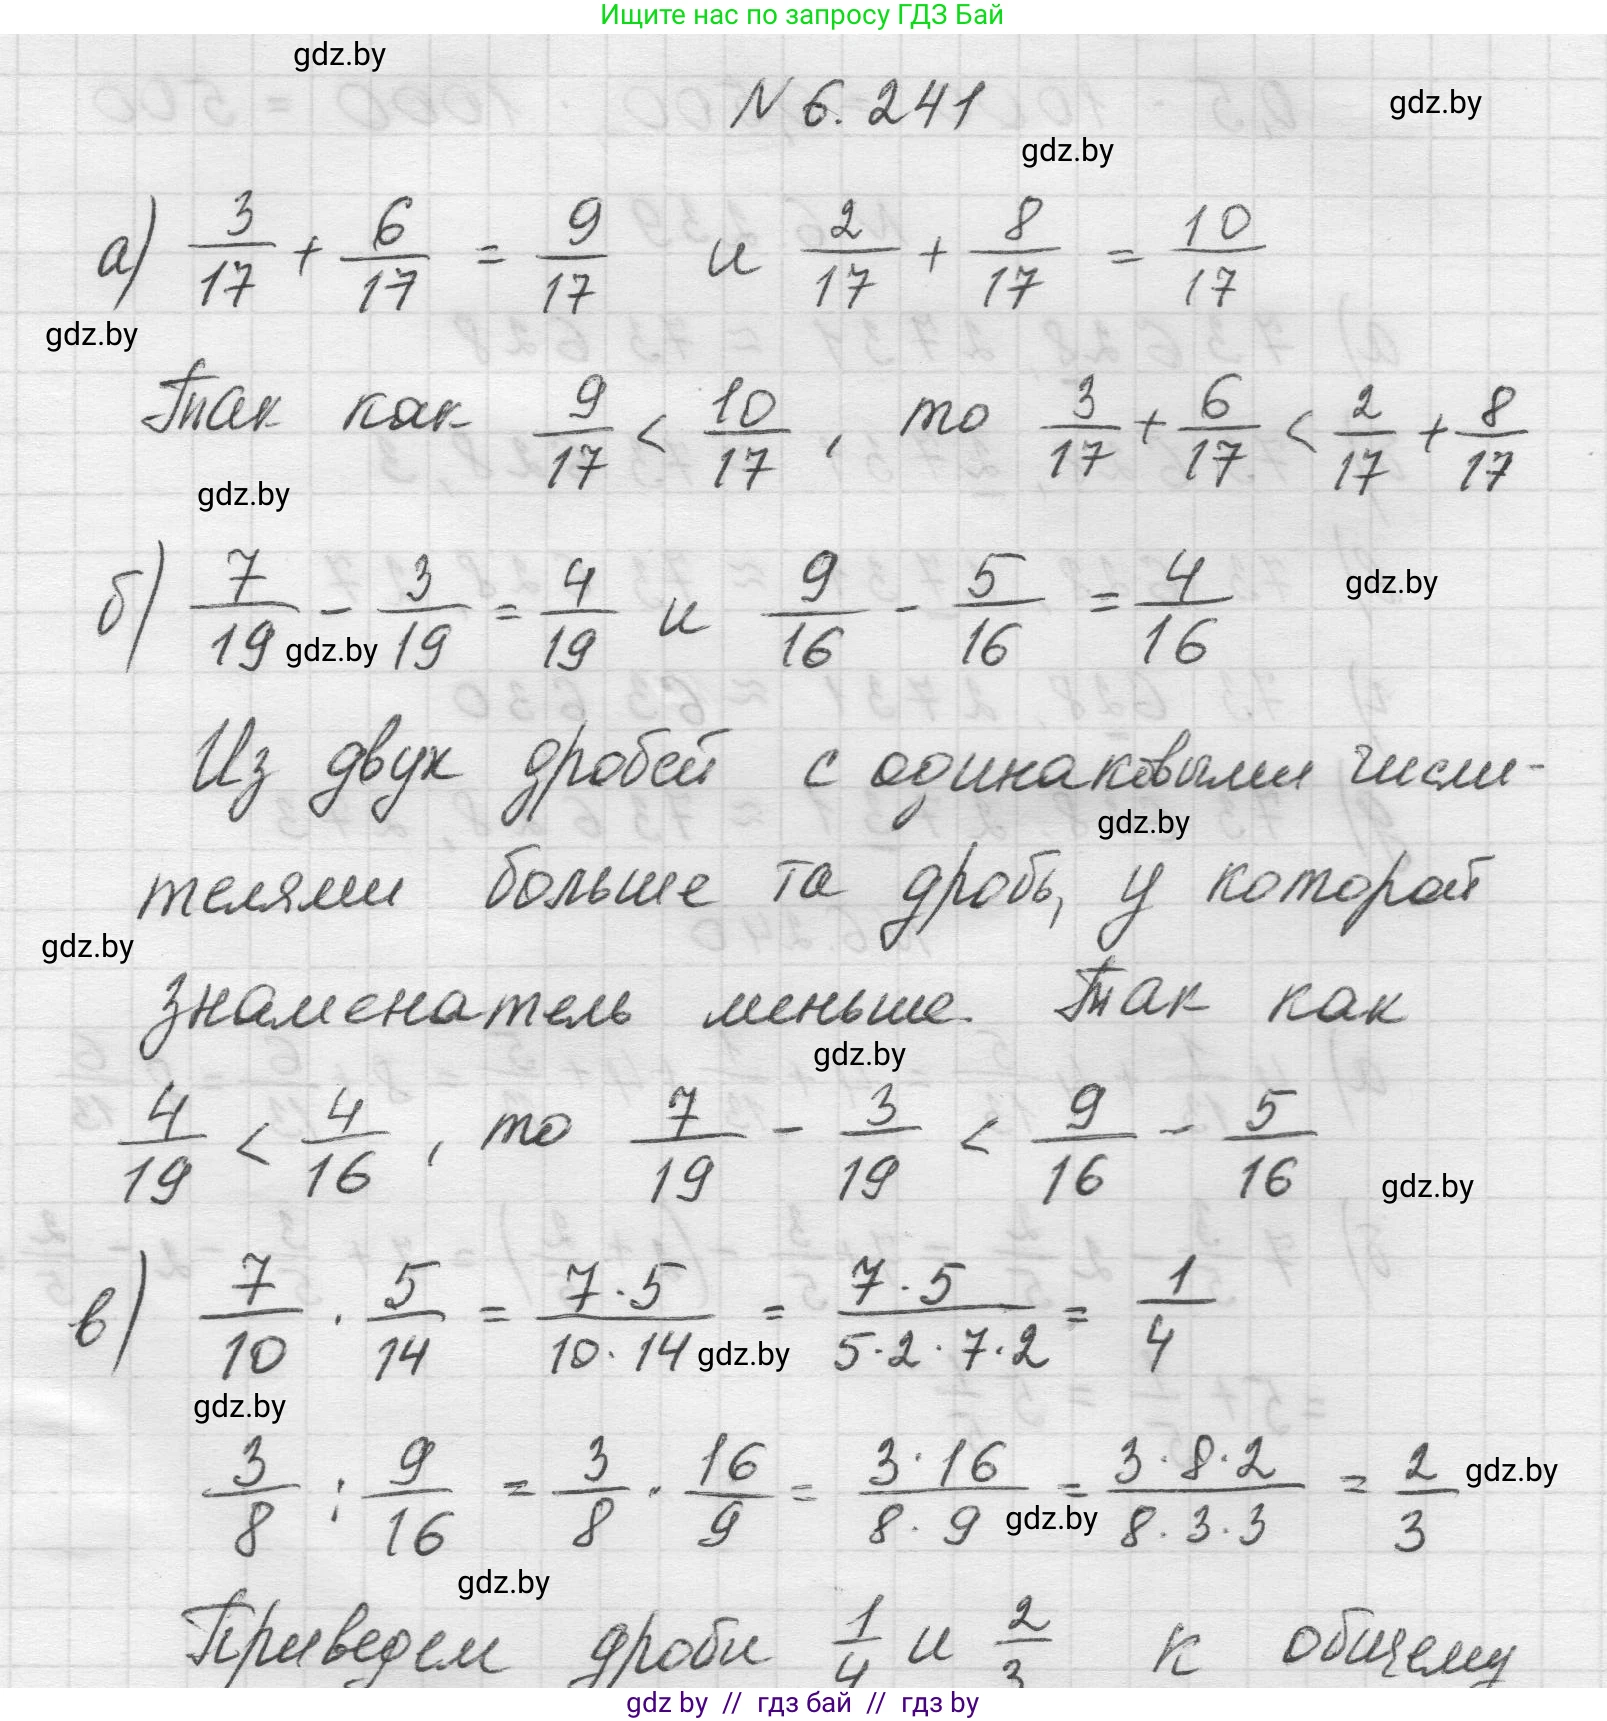 Ищите нас по запросу ГДЗ Бай
gdz.by
N 6. 241
gdz.by
gdz.by
а) 3/17 + 6/17 = 9/17 и 2/17 + 8/17 = 10/17
gdz.by
Так как 9/17 < 10/17, то 3/17 + 6/17 < 2/17 + 8/17
gdz.by
б) 7/19 - 3/19 = 4/19 и 9/16 - 5/16 = 4/16
gdz.by
gdz.by
Из двух дробей с одинаковыми числи-
gdz.by
телями больше та дробь, у которой
gdz.by
знаменатель меньше. Так как
gdz.by
4/19 < 4/16, то 7/19 - 3/19 < 9/16 - 5/16
gdz.by
в) 7/10 · 5/14 = 7·5/10·14 = 7·5/5·2·7·2 = 1/4
gdz.by
gdz.by
3/8 : 9/16 = 3/8 · 16/9 = 3·16/8·9 = 3·8·2/8·3·3 = 2/3
gdz.by
gdz.by
gdz.by
Приведем дроби 1/4 и 2/3 к общему
gdz by // гдз бай // гдз by